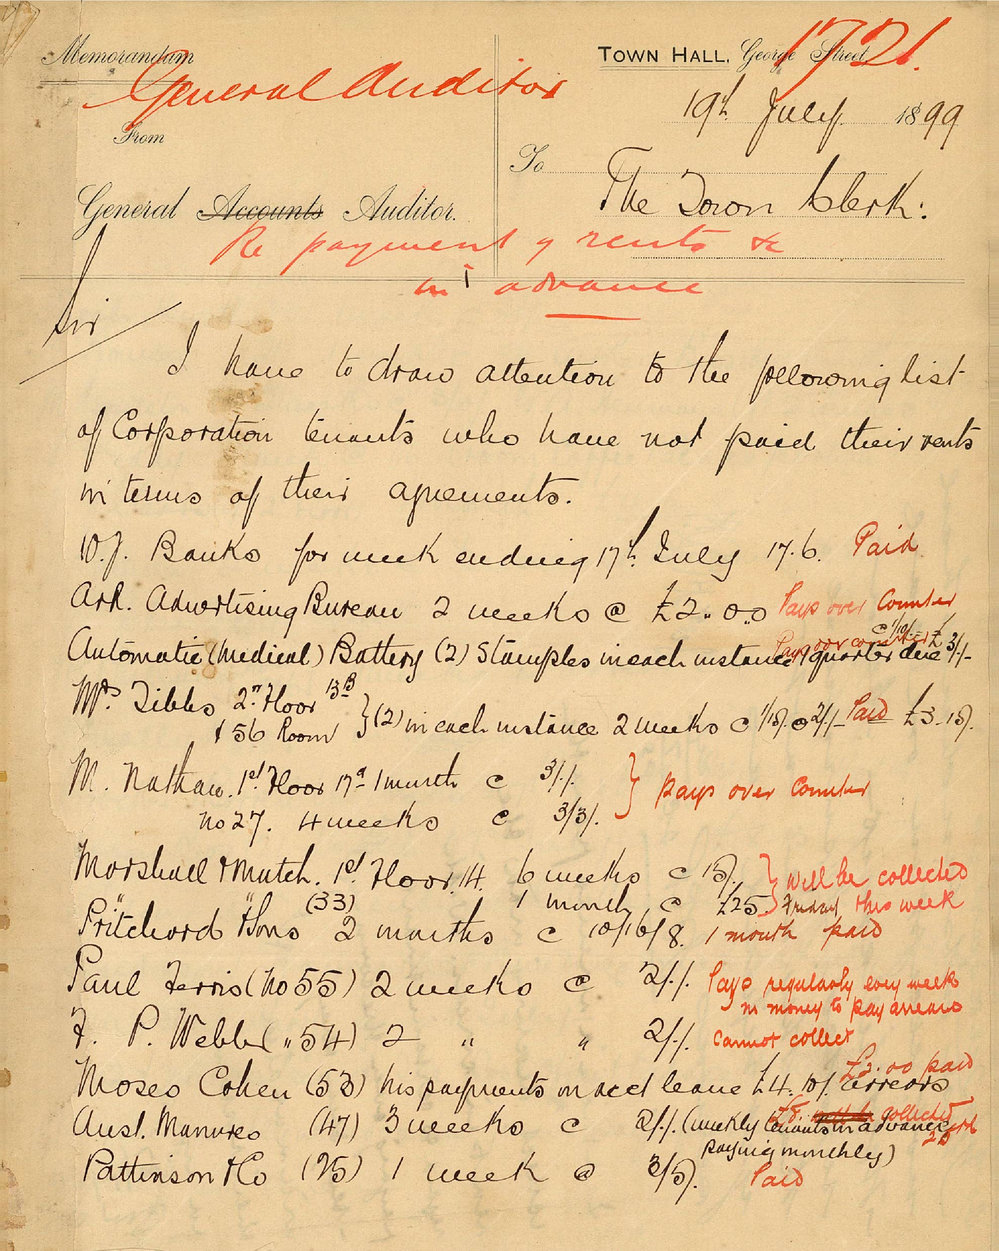 Memorandum
TOWN HALL, George Street
1721.
General Auditor
19th July 1899
From
To
General Accounts Auditor.
The Town Clerk:
Re payment of rents &c
in advance
Sir
I have to draw attention to the following list
of Corporation tenants who have not paid their rents
in terms of their agreements.
W.J. Banks for week ending 17th July 17.6. Paid
Ark. Advertising Bureau 2 weeks @ £2.0.0 Pays over Counter
Pays over counter @ 1/10/-
Automatic (Medical) Battery (2) Stamples in each instance 1 quarter due £3/-/-
Mrs Tibbs 2nd Floor 13B
& 56 Room } (2) in each instance 2 weeks @ 1/15/- @ 2/-/- Paid £3.15/.
M. Nathan. 1st Floor 17a 1 month @ 3/-/. } pays over Counter
No 27. 4 weeks @ 3/3/.
Marshall & Mutch. 1st Floor 14. 6 weeks @ 15/. } will be collected
" " (33) 1 month @ £25 Friday this week
Pritchard & Sons 2 months @ 10/16/8. 1 month paid
Paul Ferris (No 55) 2 weeks @ 2/-/. Pays regularly every week
in money to pay arrears
F. P. Webb ( " 54) 2 " " 2/-/. Cannot collect
£2.00 paid
Moses Cohen (53) his payments on acct leave £4.10/. arrears
Aust. Manures (47) 3 weeks @ 2/-/. (weekly tenants in advance
£8. collected
paying monthly)
Pattinson & Co (25) 1 week @ 3/5/. Paid